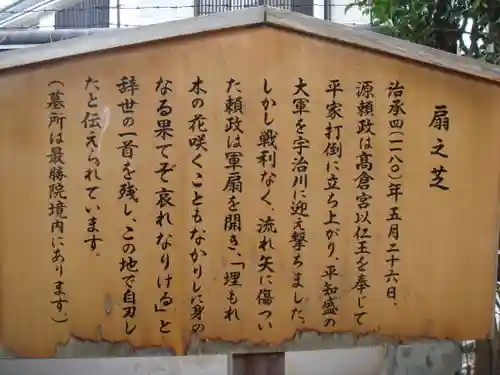 扇之芝
治承四(一一八〇)年五月二十六日、
源頼政は高倉宮以仁王を奉じて
平家打倒に立ち上がり、平知盛の
大軍を宇治川に迎え撃ちました。
しかし戦利なく、流れ矢に傷つい
た頼政は軍扇を開き、「埋もれ
木の花咲くこともなかりしに身の
なる果てぞ哀れなりける」と
辞世の一首を残し、この地で自刃し
たと伝えられています。
(墓所は最勝院境内にあります。)